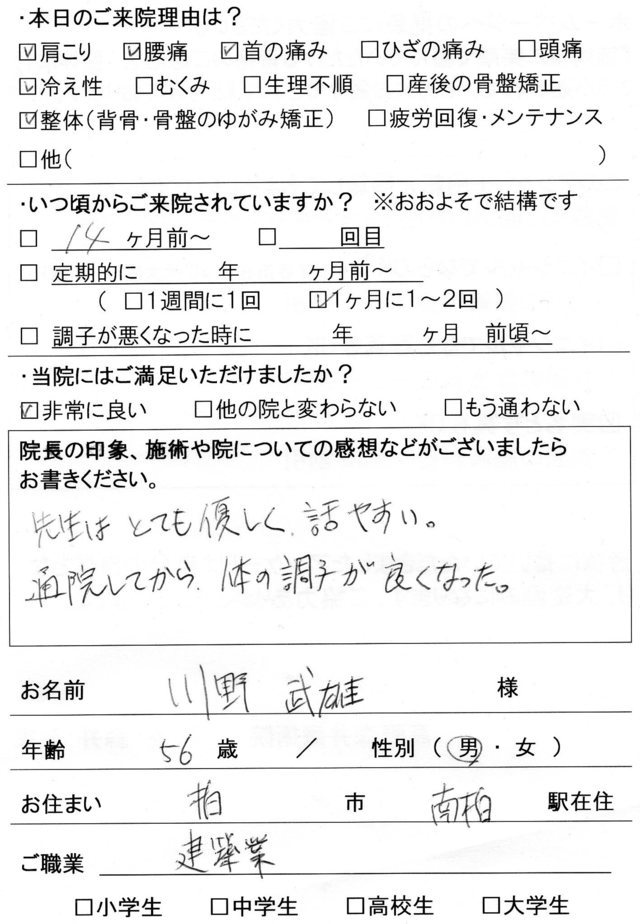 ・本日のご来院理由は？
☑肩こり ☑腰痛 ☑首の痛み □ひざの痛み □頭痛
☑冷え性 □むくみ □生理不順 □産後の骨盤矯正
☑整体（背骨・骨盤のゆがみ矯正） □疲労回復・メンテナンス
□他（ ）
・いつ頃からご来院されていますか？ ※おおよそで結構です
□ 14 ヶ月前～ □ 回目
□ 定期的に 年 ヶ月前～
（ □1週間に1回 ☑1ヶ月に1～2回 ）
□ 調子が悪くなった時に 年 ヶ月 前頃～
・当院にはご満足いただけましたか？
☑非常に良い □他の院と変わらない □もう通わない
院長の印象、施術や院についての感想などがございましたら
お書きください。
先生はとても優しく、話やすい。
通院してから、体の調子が良くなった。
お名前 川野 武雄 様
年齢 56 歳 ／ 性別 （ 男 ・ 女 ）
お住まい 柏 市 南柏 駅在住
ご職業 建築業
□小学生 □中学生 □高校生 □大学生